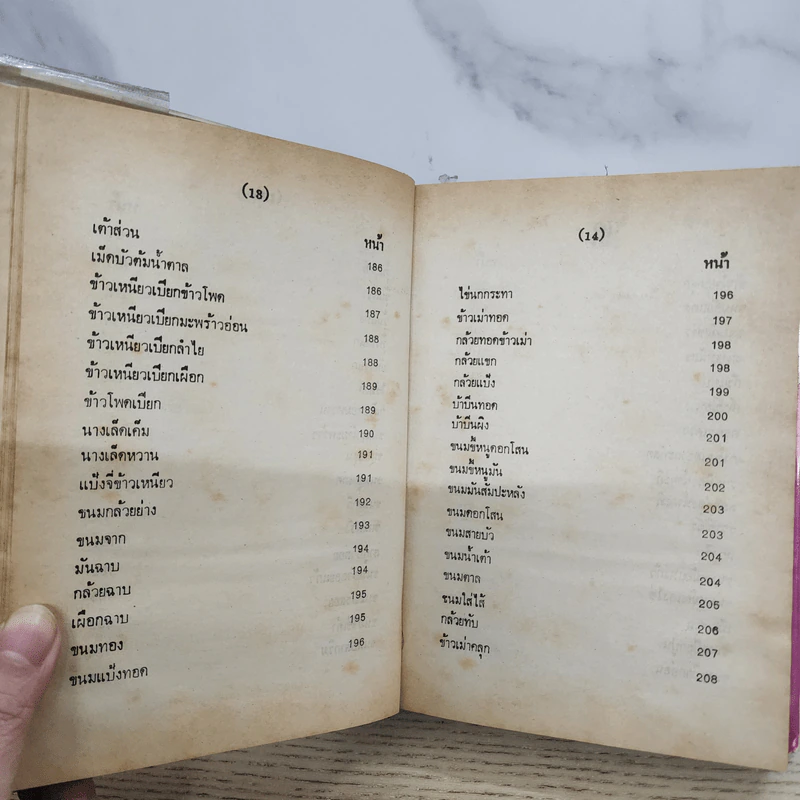 (18)
หน้า
เต้าส่วน 186
เม็ดบัวต้มน้ำตาล 186
ข้าวเหนียวเปียกข้าวโพด 187
ข้าวเหนียวเปียกมะพร้าวอ่อน 188
ข้าวเหนียวเปียกลำไย 188
ข้าวเหนียวเปียกเผือก 189
ข้าวโพดเปียก 189
นางเล็ดเค็ม 190
นางเล็ดหวาน 191
แป้งจี่ข้าวเหนียว 191
ขนมกล้วยย่าง 192
ขนมจาก 193
มันฉาบ 194
กล้วยฉาบ 194
เผือกฉาบ 195
ขนมทอง 195
ขนมแป้งทอด 196
(14)
หน้า
ไข่นกกระทา 196
ข้าวเม่าทอด 197
กล้วยทอดข้าวเม่า 198
กล้วยแขก 198
กล้วยแป้ง 199
บ้าบิ่นทอด 200
บ้าบิ่นผิง 201
ขนมขี้หนูดอกโสน 201
ขนมขี้หนูมัน 202
ขนมมันสัมปะหลัง 203
ขนมดอกโสน 203
ขนมสายบัว 204
ขนมน้ำเต้า 204
ขนมตาล 205
ขนมใส่ไส้ 206
กล้วยทับ 207
ข้าวเม่าคลุก 208